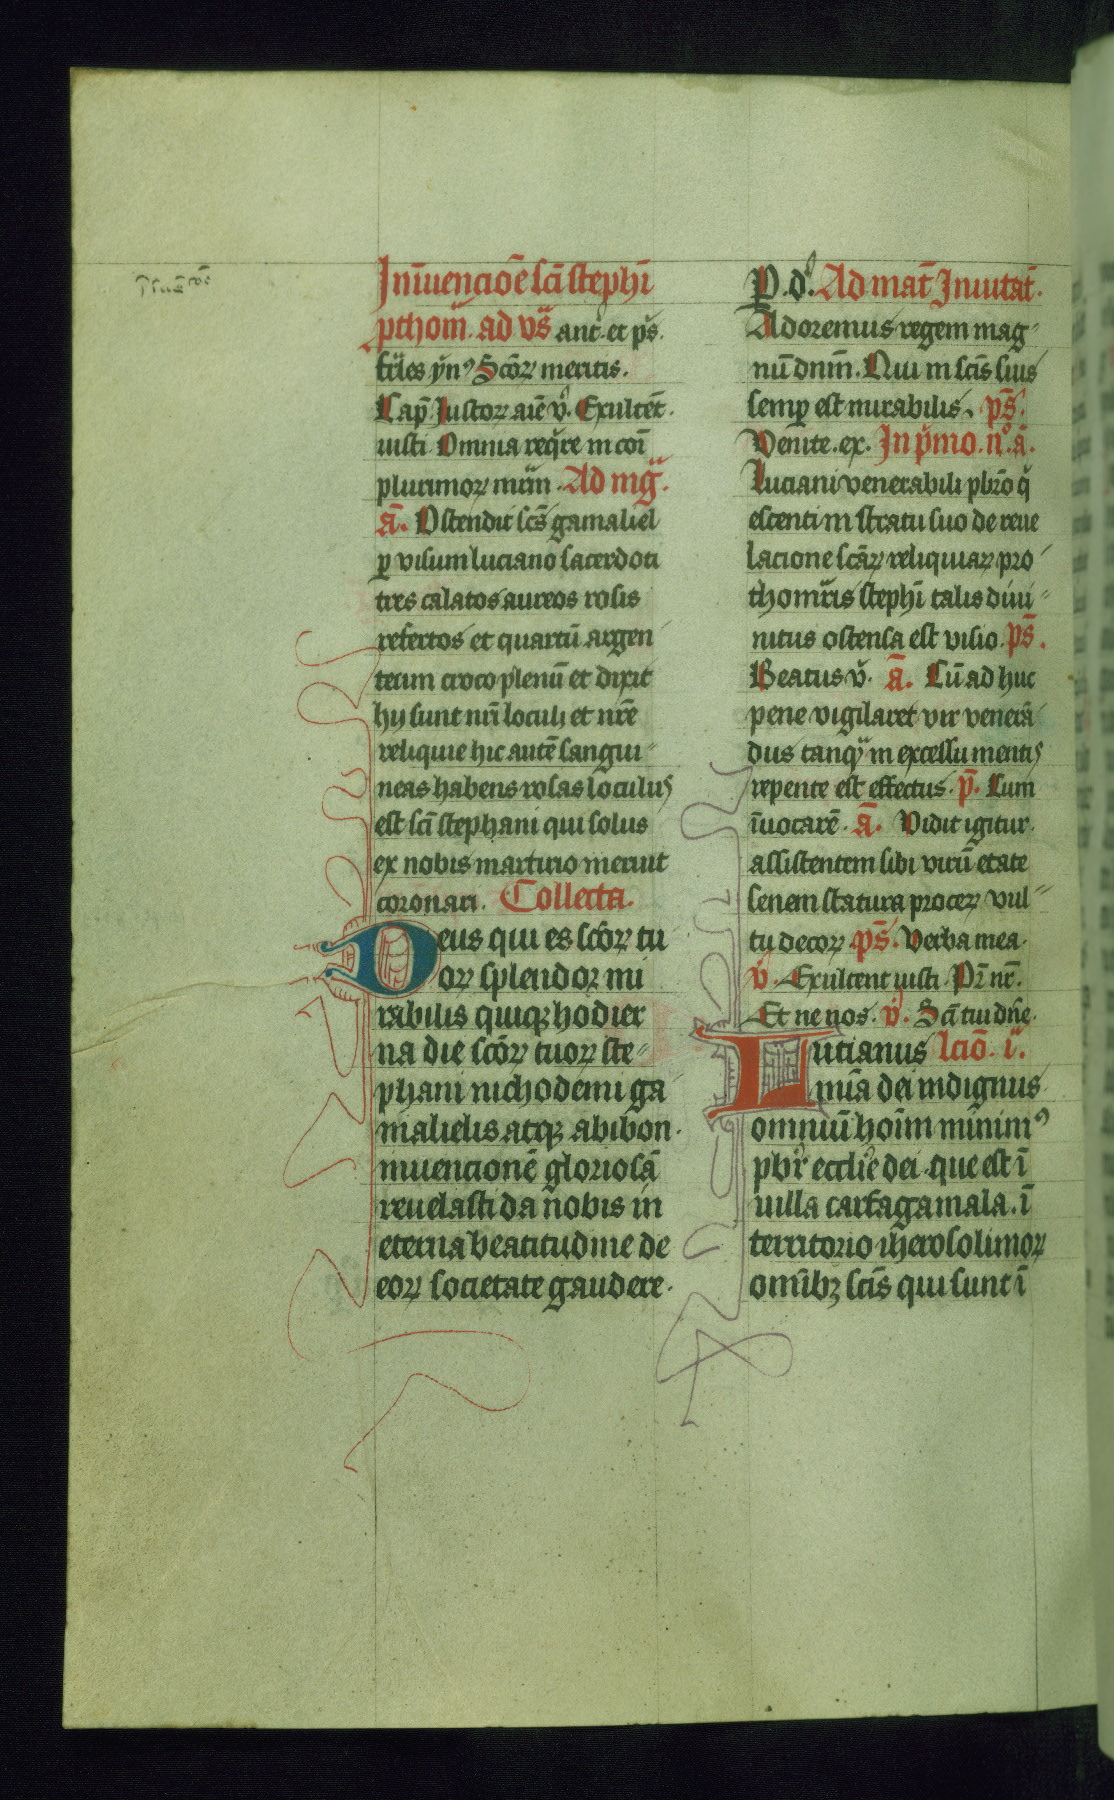 In inuencioē scī stephī
pthom̄. ad vs̄ anī. et ps̄.
friles yn⁹ Scōꝝ meritis.
Cap̄. Iustoꝝ aīe v̄. Exultēt.
iusti Omnia req̄re in cōi
plurimoꝝ mr̄m. Ad mḡ.
ā. Ostendit scs̄ gamaliel
ꝑ visum luciano sacerdoti
tres calatos aureos rosis
refertos et quartū argen
teum croco plenū et dixit
hij sunt nrī loculi et nrē
reliquie hic autē sangui
neas habens rosas loculus
est scī stephani qui solus
ex nobis martirio meruit
coronari. Collecta.
Deus qui es scōꝝ tu
oꝝ splendor mi
rabilis quiqꝫ hodier
na die scōꝝ tuoꝝ ste
phani nichodemi ga
malielis atqꝫ abibon.
inuencionē gloriosā
reuelasti da nobis in
eterna beatitudine de
eoꝝ societate gaudere.
P. d. Ad mat̄ Inuitat̄.
Adoremus regem mag
nū dnm̄. Qui in scīs suis
semꝑ est mirabilis. ps̄.
Venite. ex. In p̄mo. n̊. ā.
Luciani venerabili pbrō q̄
escenti in stratu suo de reue
lacione scāꝝ reliquiaꝝ pro
thomr̄is stephī talis diui
nitus ostensa est visio. ps̄.
Beatus v̄. ā. Cū ad huc
pene vigilaret vir venerā
dus tanq̄ in excessu mentis
repente est effectus. p̄. Cum
īuocarē. ā. Vidit igitur
assistentem sibi virū etate
senem statura proceꝝ vul
tu decoꝝ. ps̄. Verba mea.
v̄. Exultent iusti. Pr̄ nr̄.
Et ne nos. v̄. Scī tui dn̄e.
Lucianus lcīō. i.ª
miā dei indignus
omniū hoīm minim⁹
pbr̄ ecclīe dei. que est ī
uilla carfagamala. ī
territorio iherosolimoꝝ
omībꝫ scīs qui sunt ī